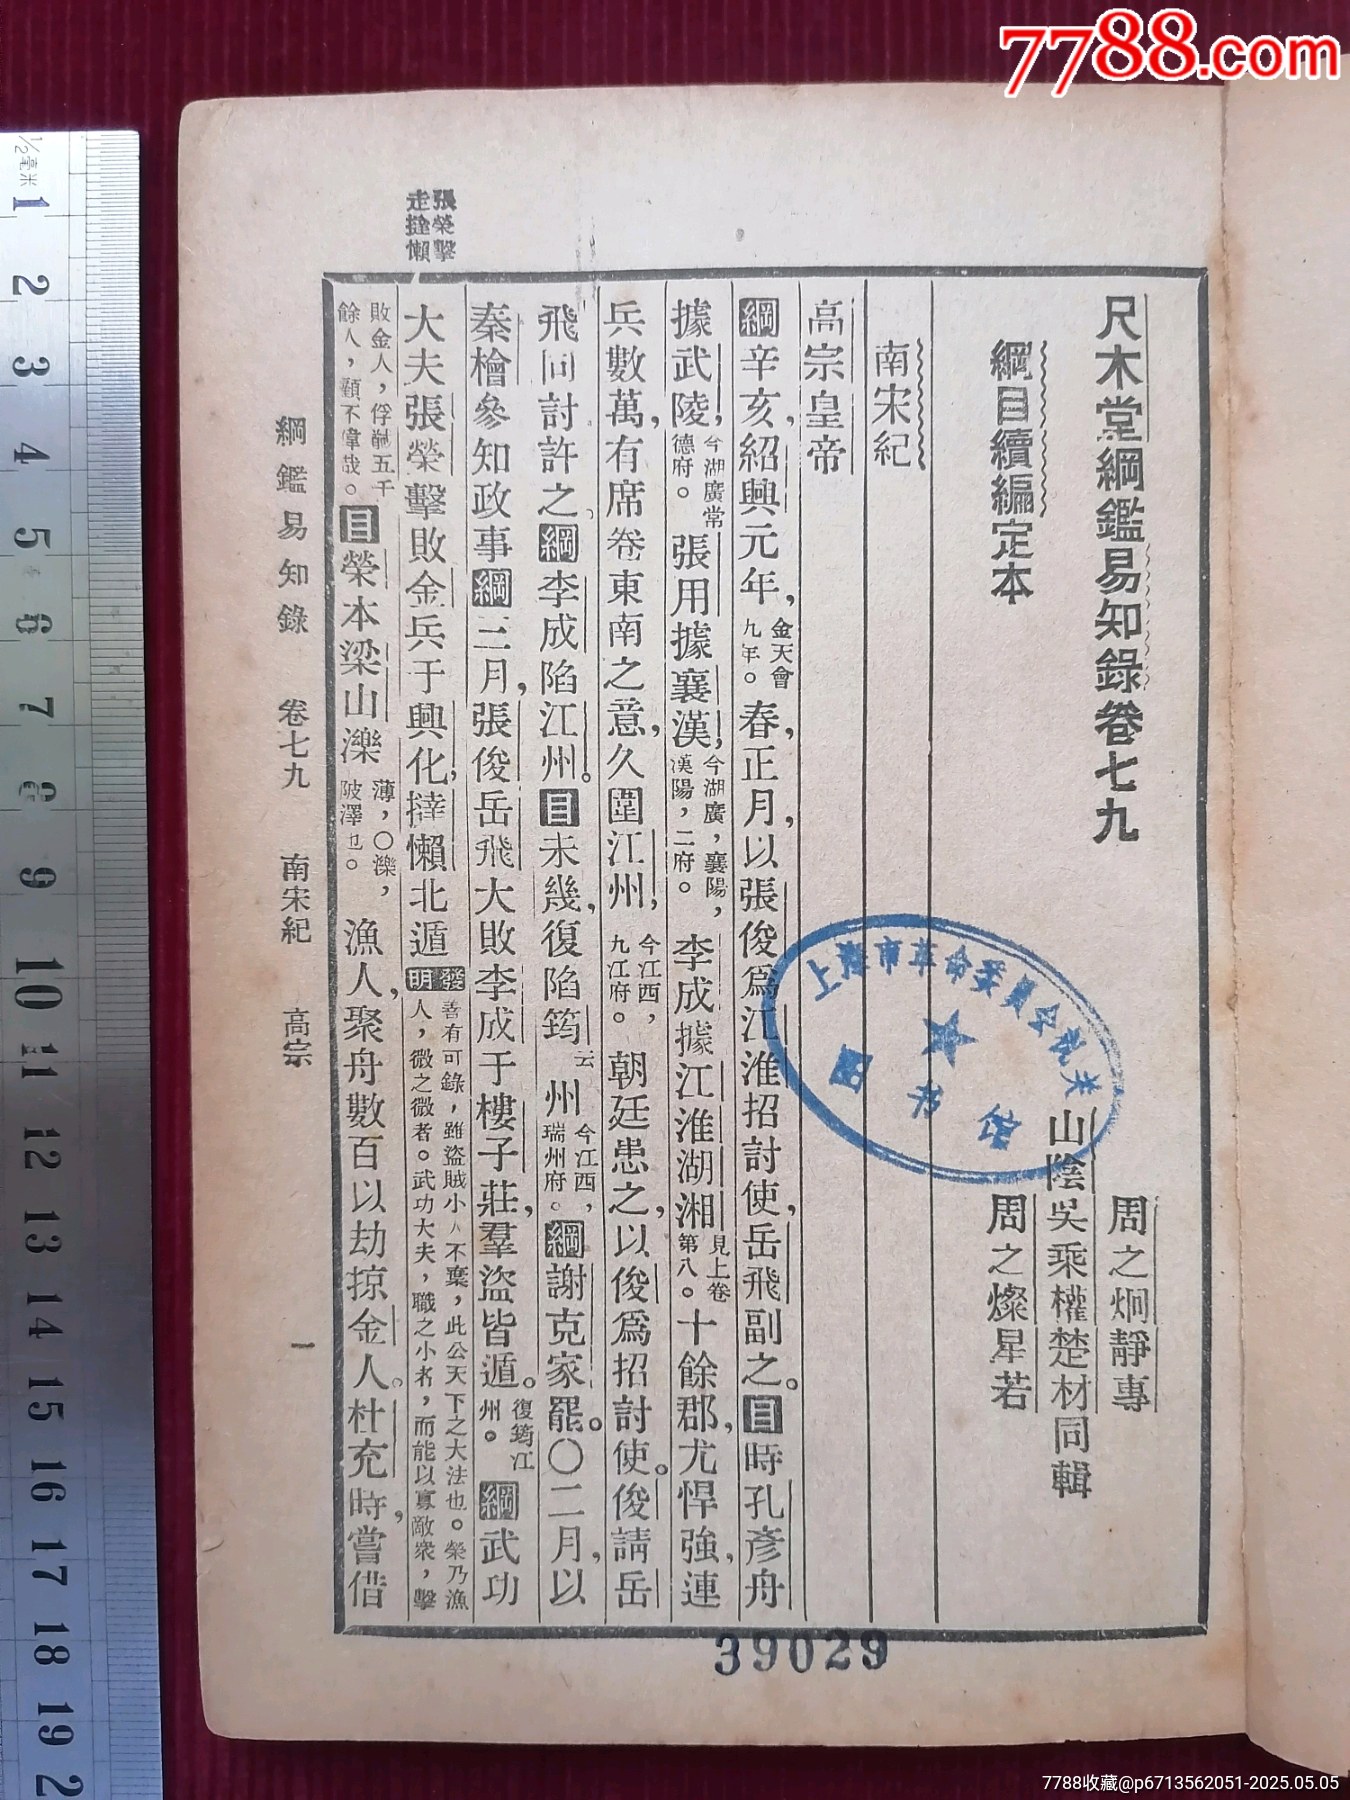 7788.com
尺木堂綱鑑易知錄卷七九
綱目續編定本
周之炯靜專
山陰吳乘權楚材同輯
周之燦星若
南宋紀
高宗皇帝
綱辛亥，紹興元年，金天會九年。春，正月，以張俊爲江淮招討使，岳飛副之。目時孔彥舟
據武陵，今湖廣常德府。張用據襄漢，今湖廣，襄陽，漢陽，二府。李成據江淮湖湘見上卷第八。十餘郡，尤悍強，連
兵數萬，有席卷東南之意，久圍江州，今江西，九江府。朝廷患之，以俊爲招討使。俊請岳
飛同討許之。綱李成陷江州。目未幾，復陷筠云州今江西，瑞州府。綱謝克家罷。〇二月，以
秦檜參知政事綱三月，張俊岳飛大敗李成于樓子莊，羣盜皆遁。復筠江州。綱武功
大夫張榮擊敗金兵于興化，撻懶北遁發明善有可錄，雖盜賊小人不棄，此公天下之大法也。榮乃漁人，微之微者。武功大夫，職之小者，而能以寡敵衆，擊
敗金人，俘馘五千餘人，顧不偉哉。目榮本梁山濼薄，〇濼，陂澤也。漁人，聚舟數百以劫掠金人。杜充時，嘗借
張榮擊走撻懶
綱鑑易知錄 卷七九 南宋紀 高宗 一
上海市革命委員会机关
图书馆
39029
½毫米
1
2
3
4
5
6
7
8
9
10
11
12
13
14
15
16
17
18
19
2
7788收藏@p6713562051-2025.05.05